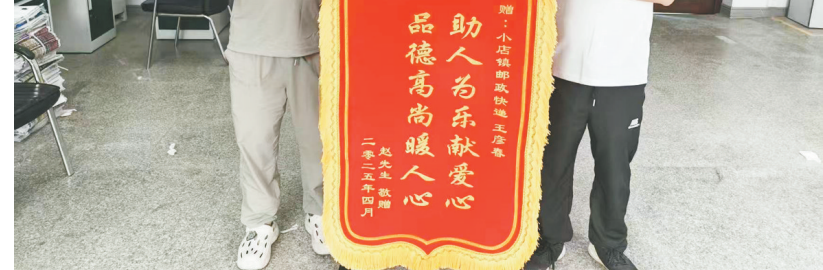 赠：小店镇邮政快递 王彦春
助人为乐献爱心
品德高尚暖人心
赵先生 敬赠
二零二五年四月